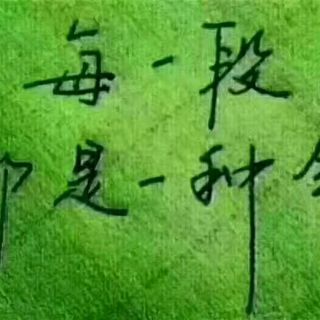 每一段
是一种